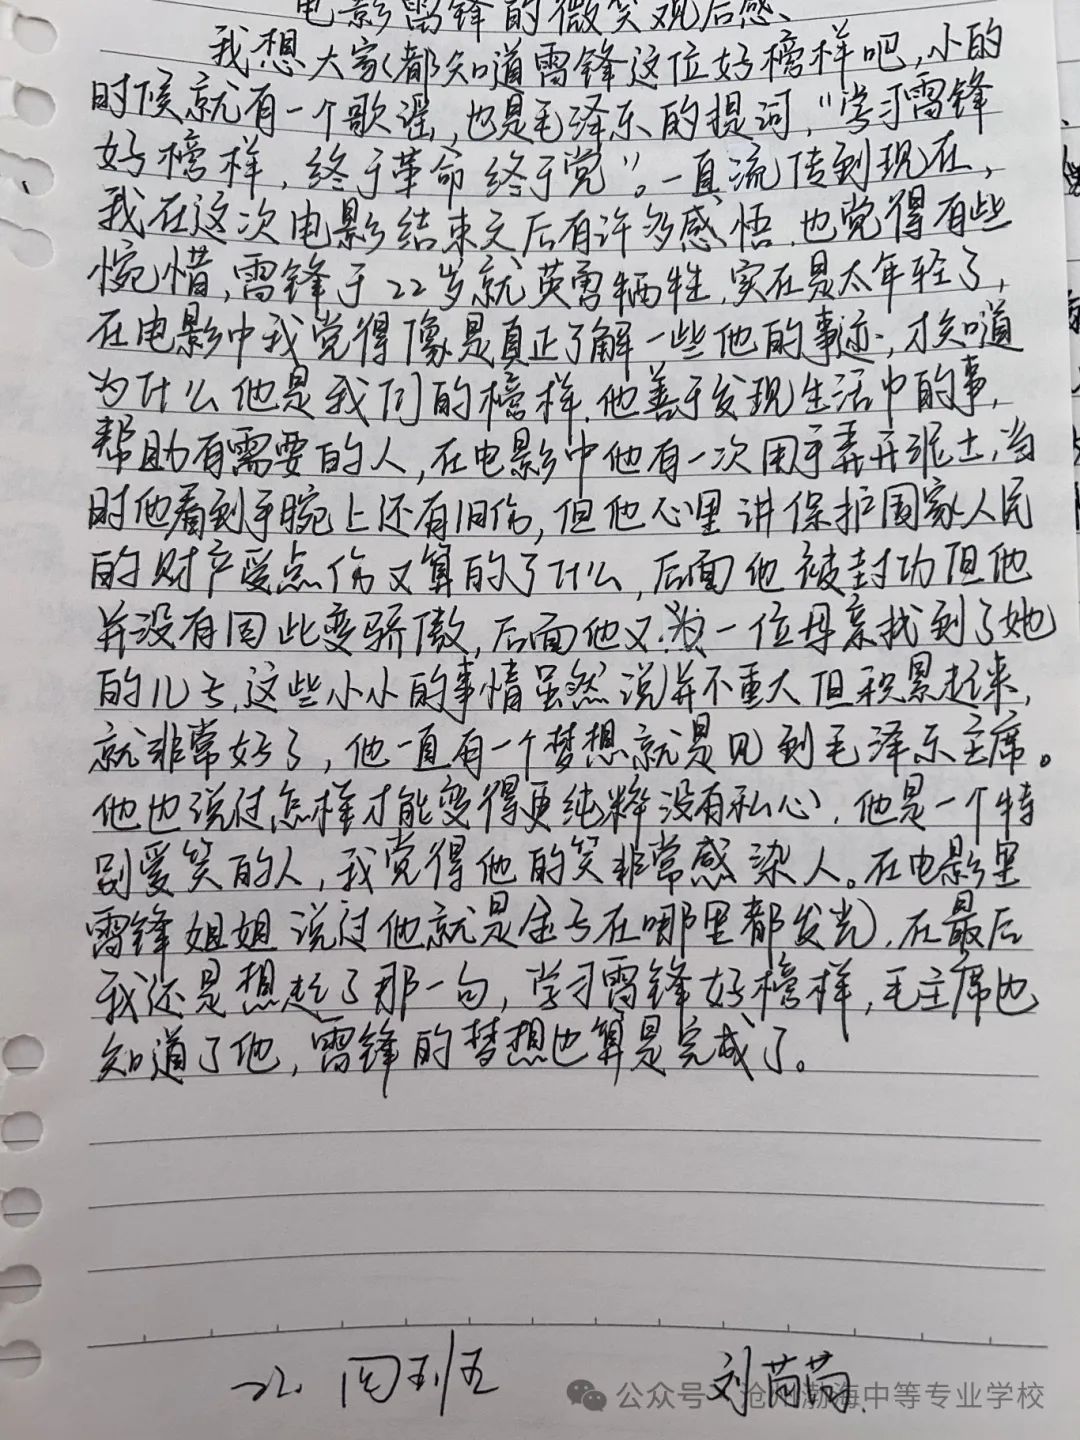 电影雷锋的微笑观后感、
我想大家都知道雷锋这位好榜样吧,小的
时候就有一个歌谣,也是毛泽东的提词,“学习雷锋
好榜样,终于革命终于党”。一直流传到现在,
我在这次电影结束之后有许多感悟,也觉得有些
惋惜,雷锋于22岁就英勇牺牲,实在是太年轻了,
在电影中我觉得像是真正了解一些他的事迹,才知道
为什么他是我们的榜样.他善于发现生活中的事,
帮助有需要的人,在电影中他有一次用手弄开泥土,当
时他看到手腕上还有旧伤,但他心里讲保护国家人民
的财产受点伤又算的了什么,后面他被封功但他
并没有因此变骄傲,后面他又为一位母亲找到了她
的儿子,这些小小的事情虽然说并不重大但积累起来,
就非常好了,他一直有一个梦想就是见到毛泽东主席。
他也说过怎样才能变得更纯粹没有私心,他是一个特
别爱笑的人,我觉得他的笑非常感染人。在电影里
雷锋姐姐说过他就是金子在哪里都发光,在最后
我还是想起了那一句,学习雷锋好榜样,毛主席也
知道了他,雷锋的梦想也算是完成了。
刘茼茼.
公众号·沧州渤海中等专业学校